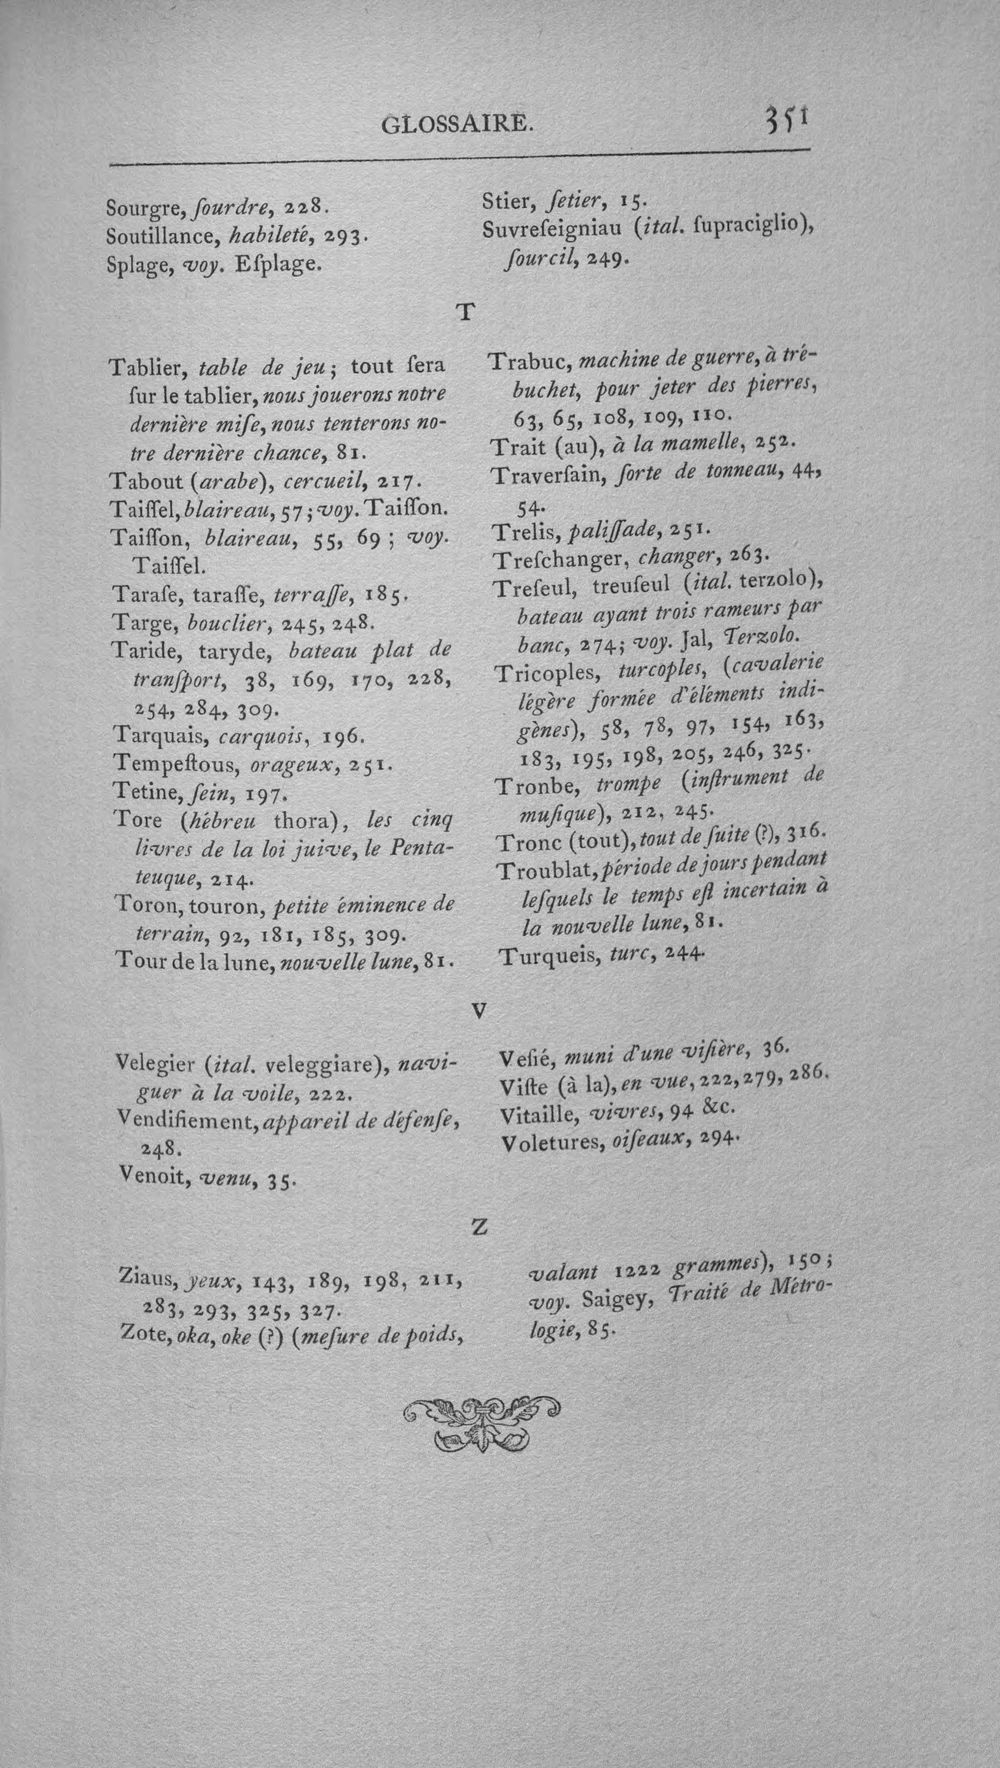 GLOSSAIRE.
351
Sourgre, ſourdre, 228.
Soutillance, habileté, 293.
Splage, voy. Eſplage.
Stier, ſetier, 15.
Suvreſeigniau (ital. ſupraciglio),
ſourcil, 249.
T
Tablier, table de jeu; tout ſera
ſur le tablier, nous jouerons notre
dernière miſe, nous tenterons no-
tre dernière chance, 81.
Tabout (arabe), cercueil, 217.
Taiſſel, blaireau, 57; voy. Taiſſon.
Taiſſon, blaireau, 55, 69; voy.
Taiſſel.
Taraſe, taraſſe, terraſſe, 185.
Targe, bouclier, 245, 248.
Taride, taryde, bateau plat de
tranſport, 38, 169, 170, 228,
254, 284, 309.
Tarquais, carquois, 196.
Tempeſtous, orageux, 251.
Tetine, ſein, 197.
Tore (hébreu thora), les cinq
livres de la loi juive, le Penta-
teuque, 214.
Toron, touron, petite éminence de
terrain, 92, 181, 185, 309.
Tour de la lune, nouvelle lune, 81.
Trabuc, machine de guerre, à tré-
buchet, pour jeter des pierres,
63, 65, 108, 109, 110.
Trait (au), à la mamelle, 252.
Traverſain, ſorte de tonneau, 44,
54.
Trelis, paliſſade, 251.
Treſchanger, changer, 263.
Treſeul, treuſeul (ital. terzolo),
bateau ayant trois rameurs par
banc, 274; voy. Jal, Terzolo.
Tricoples, turcoples, (cavalerie
légère formée d'éléments indi-
gènes), 58, 78, 97, 154, 163,
183, 195, 198, 205, 246, 325.
Tronbe, trompe (inſtrument de
muſique), 212, 245.
Tronc (tout), tout de ſuite (?), 316.
Troublat, période de jours pendant
leſquels le temps eſt incertain à
la nouvelle lune, 81.
Turqueis, turc, 244.
V
Velegier (ital. veleggiare), navi-
guer à la voile, 222.
Vendifiement, appareil de défenſe,
248.
Venoit, venu, 35.
Veſié, muni d'une viſière, 36.
Viſte (à la), en vue, 222, 279, 286.
Vitaille, vivres, 94 &c.
Voletures, oiſeaux, 294.
Z
Ziaus, yeux, 143, 189, 198, 211,
283, 293, 325, 327.
Zote, oka, oke (?) (meſure de poids,
valant 1222 grammes), 150;
voy. Saigey, Traité de Métro-
logie, 85.